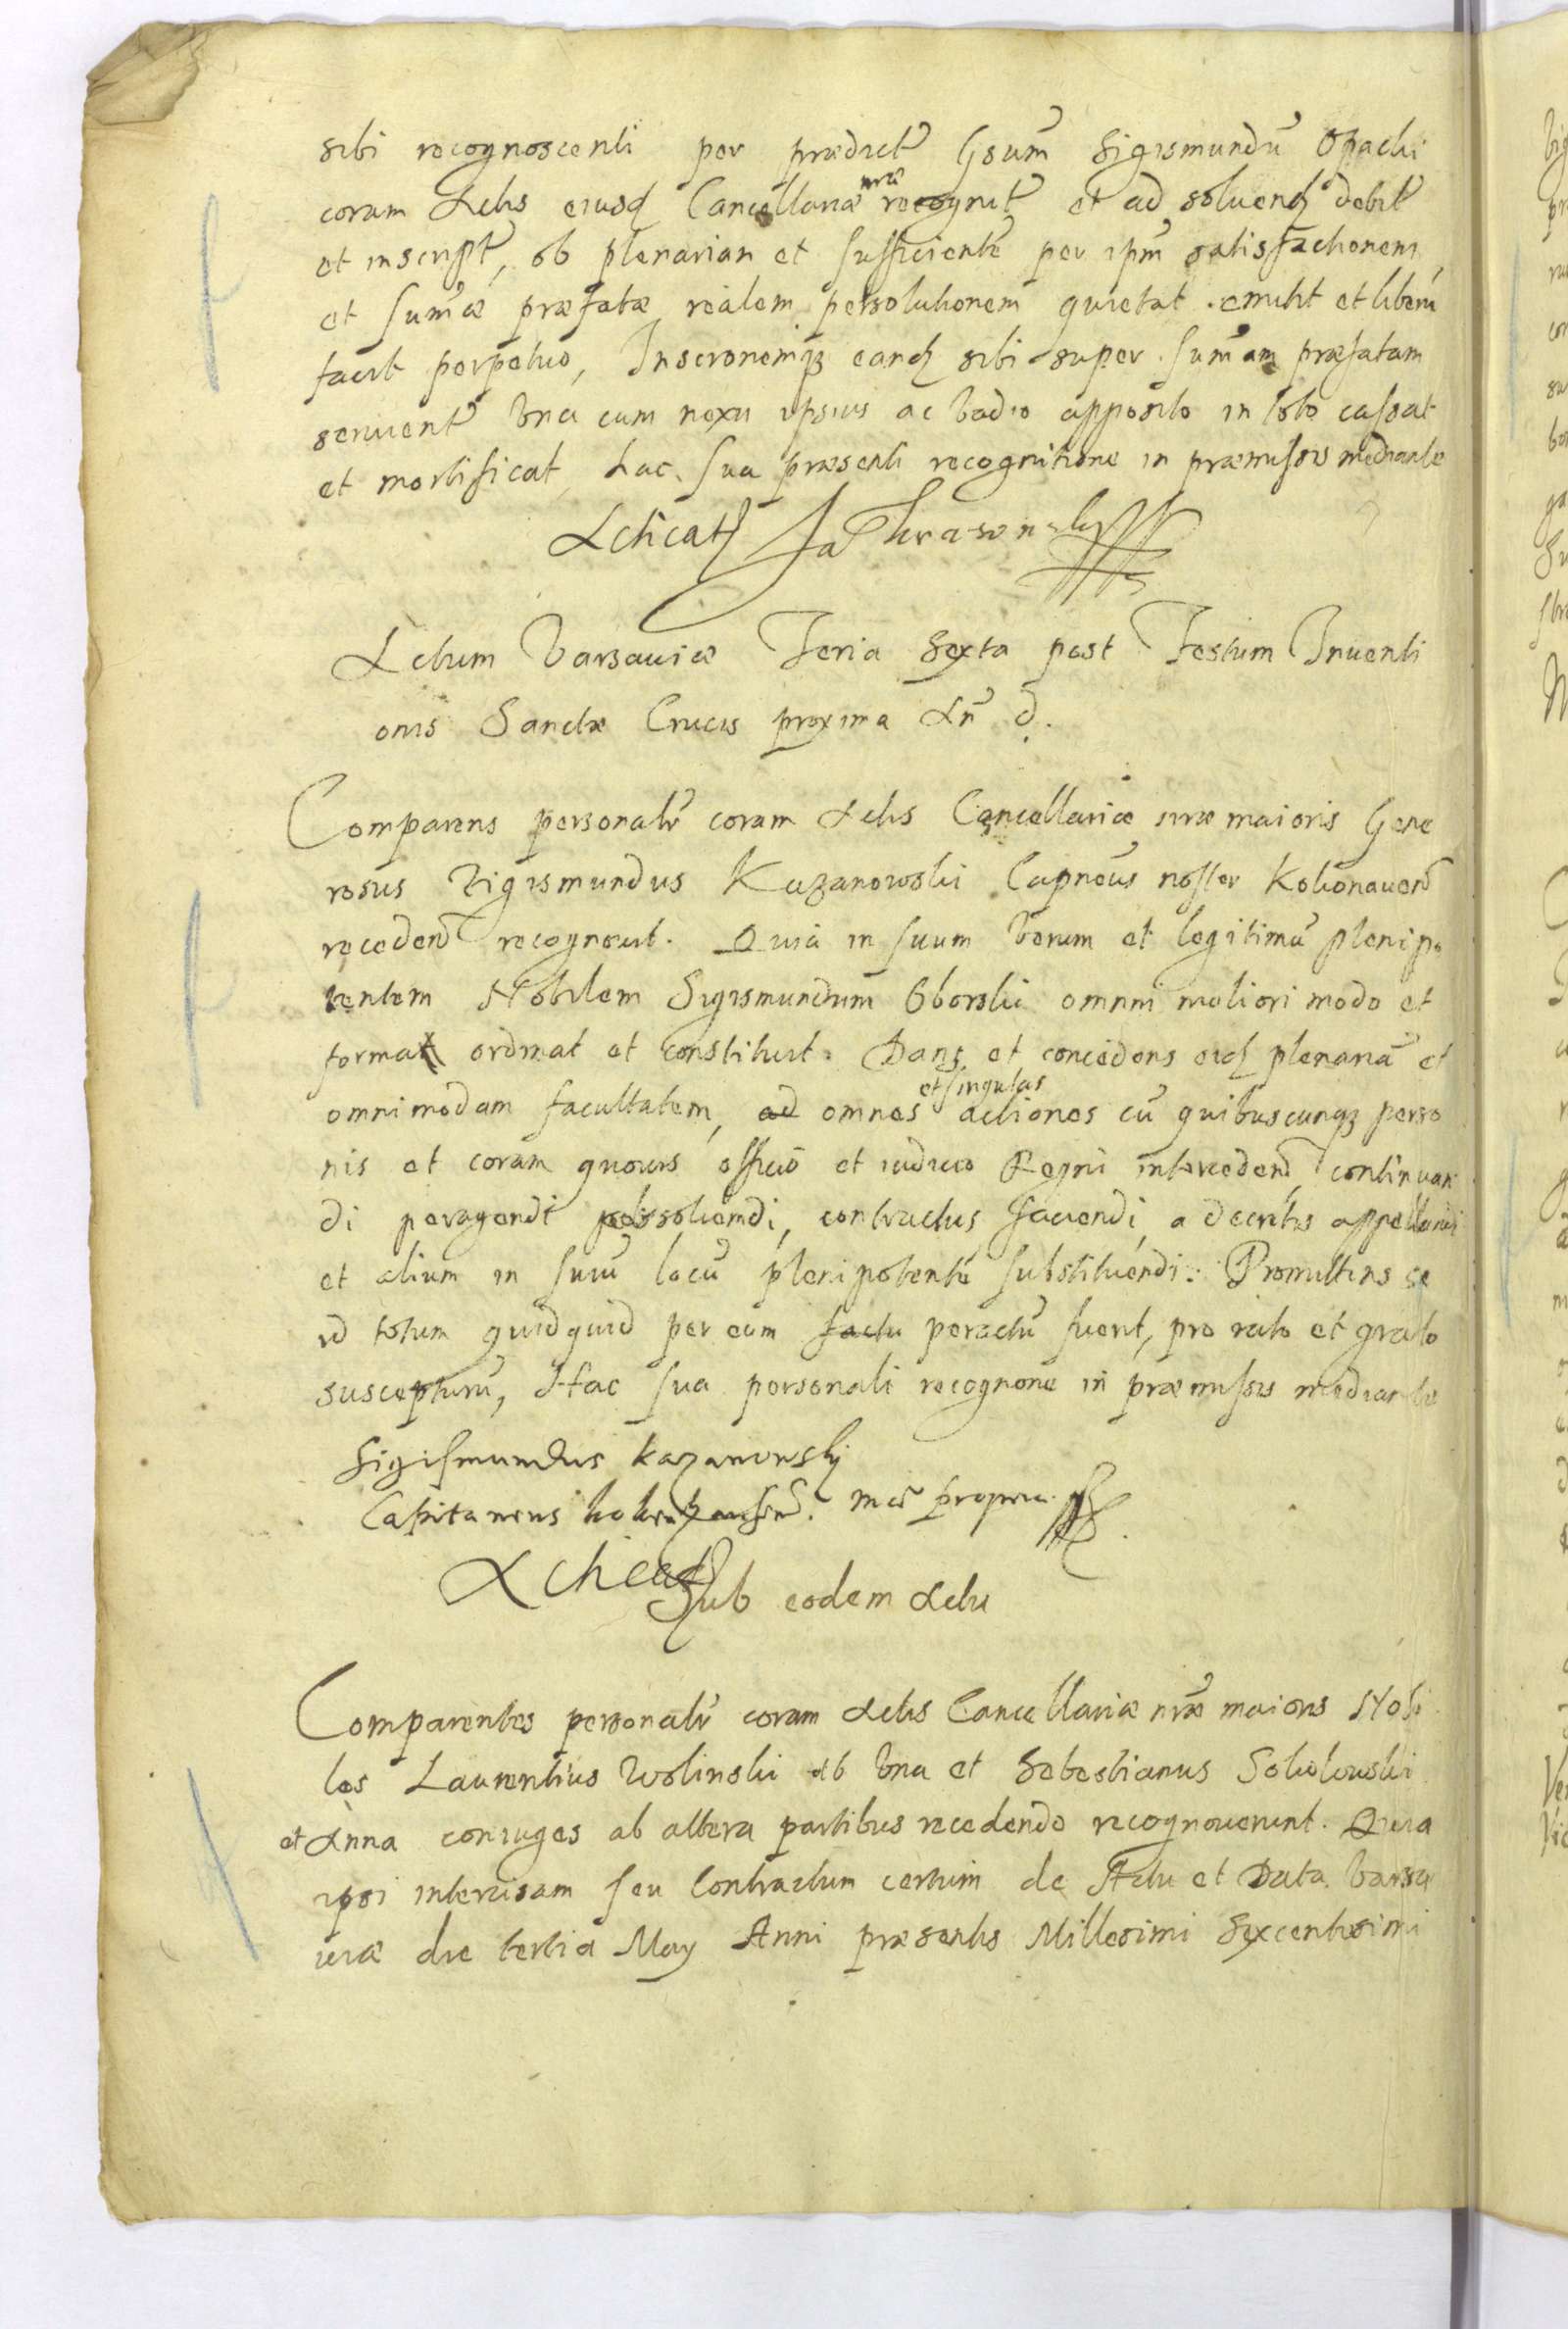 sibi recognoscenti per prædictũ Gsum Sigismundũ Opacki
coram Actis eiusd Cancellariæ nræ recognit̃ et ad soluend debit̃
et inscript̃, ob plenariam et sufficientẽ per ipm̃ satisfactionem,
et sum̃æ præfatæ realem persolutionem quietat emittit et liberũ
facit perpetuo, Inscronemq̃ eand sibi super sum̃am præfatam
seruient̃ vna cum nexu ipsius ac vadio apposito in toto cassat
et mortificat, hac sua præsenti recognitione in præmissis mediante
Acticat
Actum Varsauiæ Feria Sexta post Festum Inuenti
onis Sanctæ Crucis proxima An̄ d.
Comparens personalr̃ coram Actis Cancellariæ nræ maioris Gene
rosus Sigismundus Kazanowski Capneus noster Kokonauen̄
receden̄ recognouit. Quia in suum verum et legitimũ plenipo
tentem Nobilem Sigismundum Oborski omnni meliori modo et
forma ordinat et constituit. Dans et concedens eid plenariã et
omnimodam facultatem, ad omnes et singulas actiones cũ quibuscunq̃ perso
nis et coram quouis officio et iudicio Regni interceden̄ continuan
di peragendi persoluendi, contractus faciendi, a decretis appellandi
et alium in suũ locũ plenipotentẽ substituendi. Promittens se
id totum quidquid per eum factu peractũ fuerit, pro rato et grato
suscepturũ, Hac sua personali recognone in præmissis mediante
Sigismundus Kazanowsky
Capitaneus mañ propria.
Acticat
Sub eodem Actu
Comparentes personalr̃ coram Actis Cancellariæ nræ maioris Nobi
les Laurentius Wolinski ab vna et Sebestianus Sokolowski
et Anna coniuges ab altera partibus recedendo recognouerunt. Quia
ipsi intercisam seu Contractum certum de Actu et Data Varsa
uiæ die tertia May Anni præsentis Millesimi Sexcentesimi